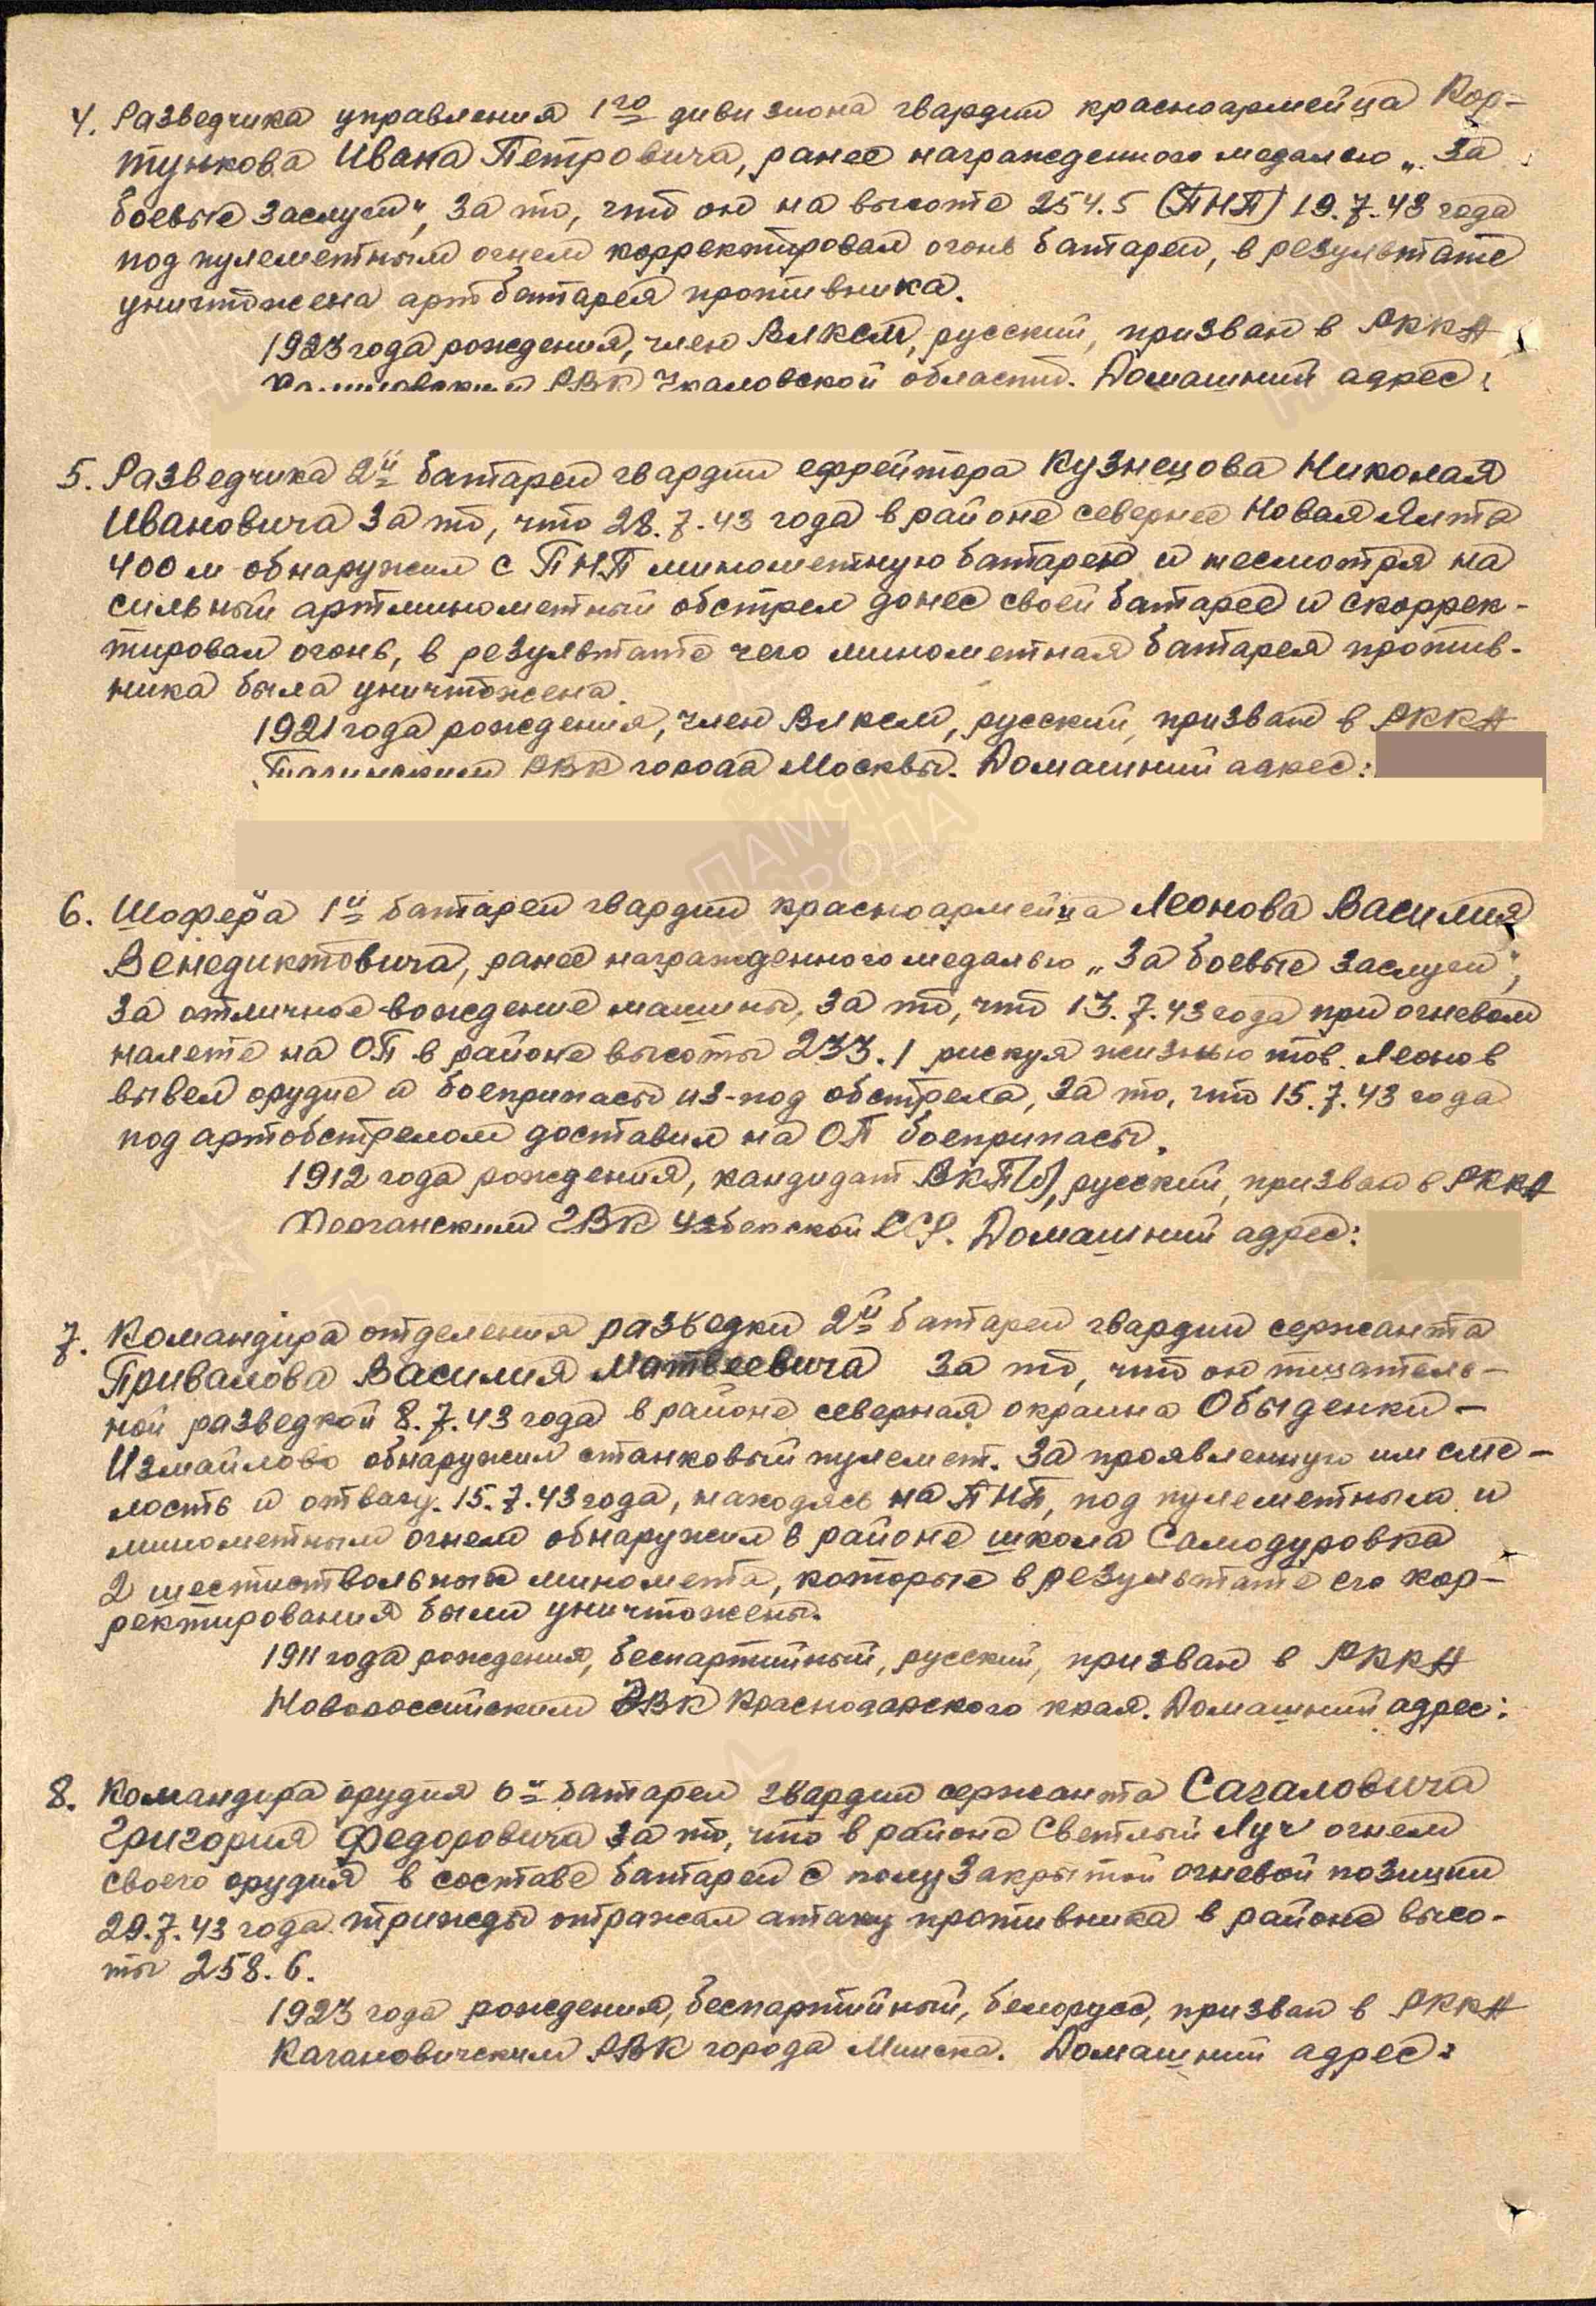 4. Разведчика управления 1го дивизиона гвардии красноармейца Кор-
тункова Ивана Петровича, ранее награжденного медалью „За
боевые заслуги“, за то, что он на высоте 254.5 (ПНП) 19.7.43 года
под пулеметным огнем корректировал огонь батареи, в результате
уничтожена артбатарея противника.
1923 года рождения, член ВЛКСМ, русский, призван в РККА
РВК Чкаловской области. Домашний адрес:
5. Разведчика 2й батареи гвардии ефрейтора Кузнецова Николая
Ивановича за то, что 28.7.43 года в районе севернее Новая Ялта
400 м обнаружил с ПНП минометную батарею и несмотря на
сильный артминометный обстрел донес своей батарее и скоррек-
тировал огонь, в результате чего минометная батарея против-
ника была уничтожена.
1921 года рождения, член ВЛКСМ, русский, призван в РККА
РВК города Москвы. Домашний адрес:
ПАМЯТЬ
НАРОДА
6. Шофера 1й батареи гвардии красноармейца Леонова Василия
Венедиктовича, ранее награжденного медалью „За боевые заслуги“,
за отличное вождение машины, за то, что 13.7.43 года при огневом
налете на ОП в районе высоты 233.1 рискуя жизнью тов. Леонов
вывел орудие и боеприпасы из-под обстрела, за то, что 15.7.43 года
под артобстрелом доставил на ОП боеприпасы.
1912 года рождения, кандидат ВКП(б), русский, призван в РККА
ГВК Узбекской ССР. Домашний адрес:
7. Командира отделения разведки 2й батареи гвардии сержанта
Привалова Василия Матвеевича за то, что он тщатель-
ной разведкой 8.7.43 года в районе северная окраина Обыденки-
Измайлово обнаружил станковый пулемет. За проявленную им сме-
лость и отвагу. 15.7.43 года, находясь на ПНП, под пулеметным и
минометным огнем обнаружил в районе школа Самодуровка
2 шестиствольных миномета, которые в результате его кор-
ректирования были уничтожены.
1911 года рождения, беспартийный, русский, призван в РККА
Новороссийским РВК Краснодарского края. Домашний адрес:
8. Командира орудия 6й батареи гвардии сержанта Сагаловича
Григория Федоровича за то, что в районе Светлый Луч огнем
своего орудия в составе батареи с полузакрытой огневой позиции
29.7.43 года трижды отражал атаку противника в районе высо-
ты 258.6.
1923 года рождения, беспартийный, белорусс, призван в РККА
Кагановичским РВК города Минска. Домашний адрес: